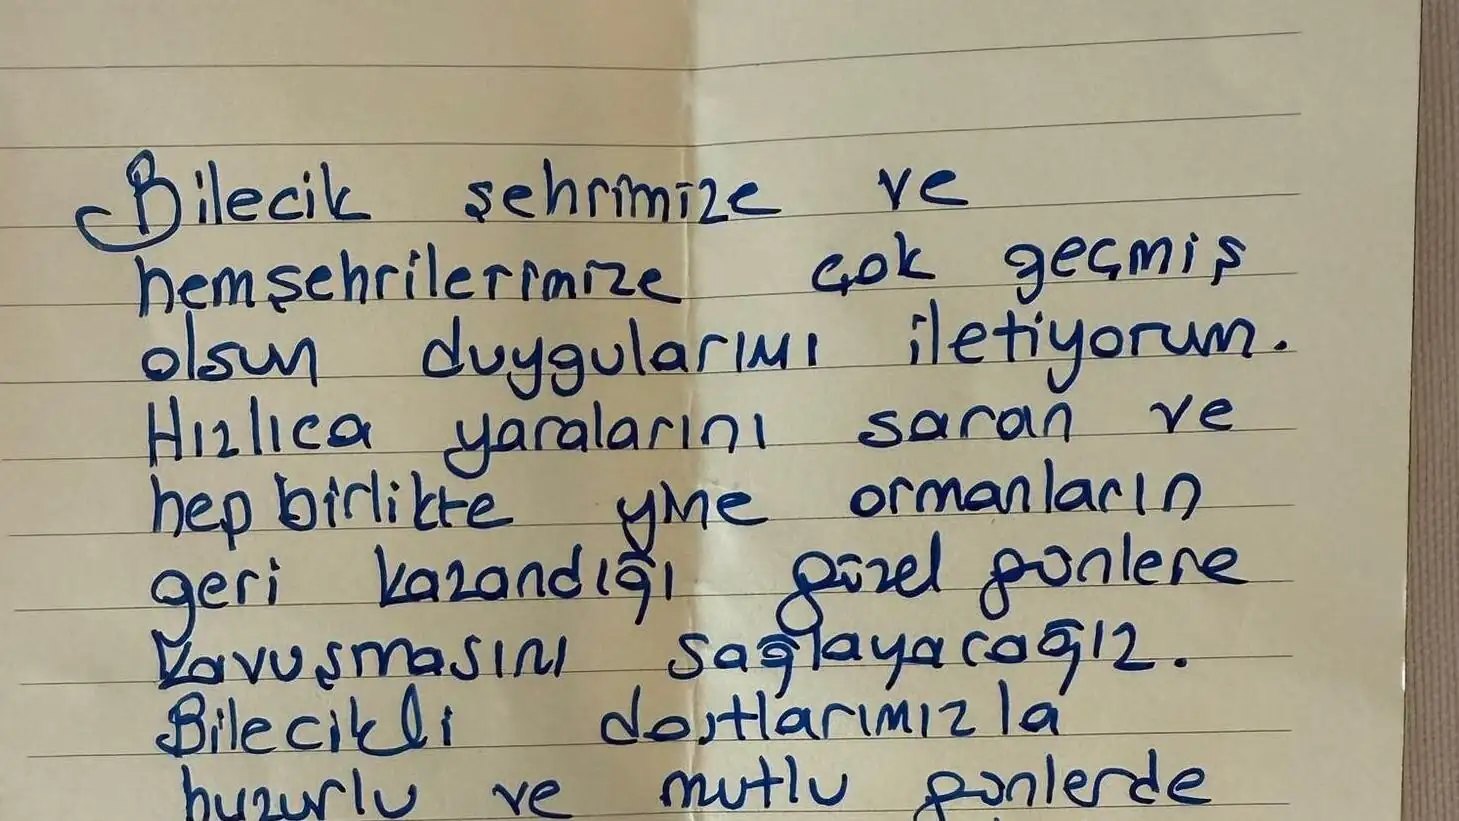 Bilecik şehrimize ve
hemşehrilerimize çok geçmiş
olsun duygularımı iletiyorum.
Hızlıca yaralarını saran ve
hep birlikte yine ormanların
geri kazandığı güzel günlere
kavuşmasını sağlayacağız.
Bilecikli dostlarımızla
huzurlu ve mutlu günlerde